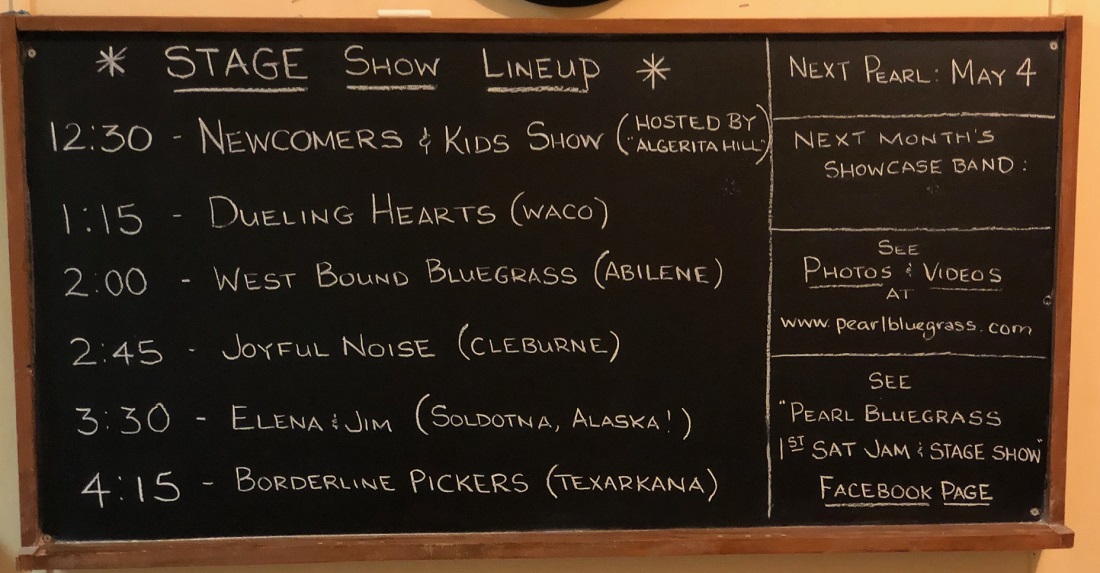 * STAGE SHOW LINEUP *
12:30 - NEWCOMERS & KIDS SHOW (HOSTED BY "ALGERITA HILL")
1:15 - DUELING HEARTS (WACO)
2:00 - WEST BOUND BLUEGRASS (ABILENE)
2:45 - JOYFUL NOISE (CLEBURNE)
3:30 - ELENA & JIM (SOLDOTNA, ALASKA!)
4:15 - BORDERLINE PICKERS (TEXARKANA)
NEXT PEARL: MAY 4
NEXT MONTH'S
SHOWCASE BAND:
SEE
PHOTOS & VIDEOS
AT
www.pearlbluegrass.com
SEE
"PEARL BLUEGRASS
1ST SAT JAM & STAGE SHOW"
FACEBOOK PAGE